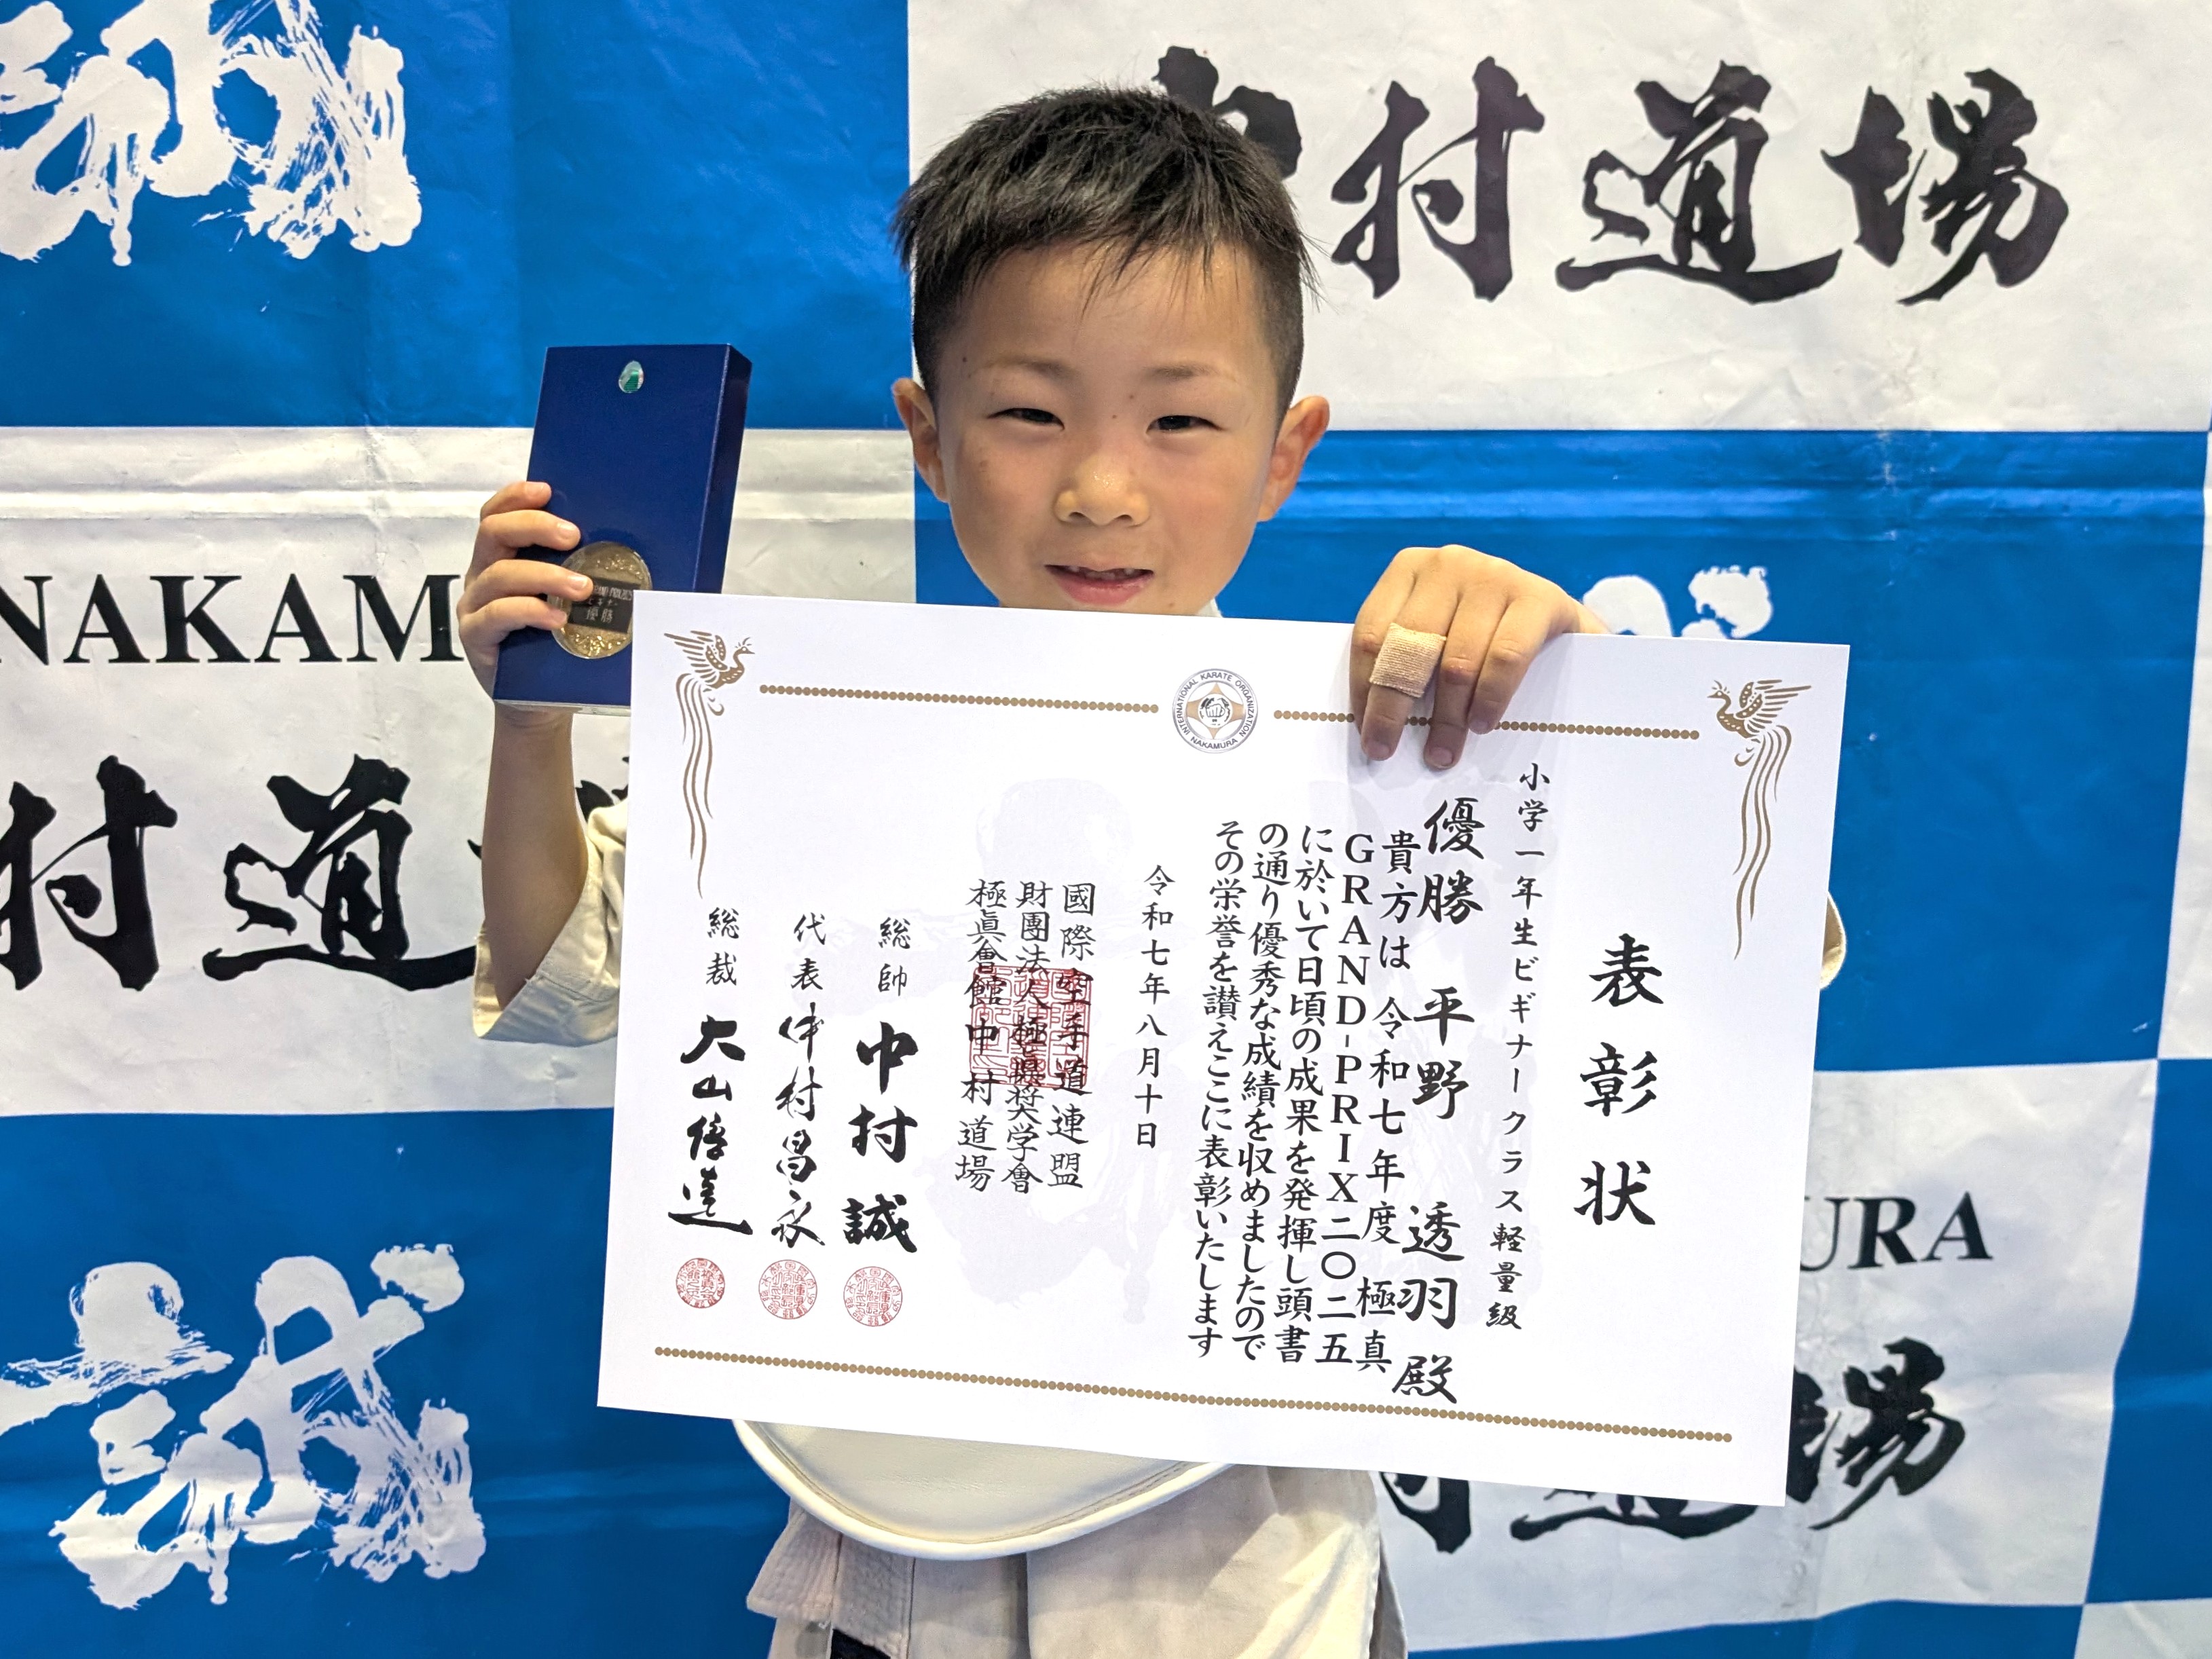 誠
中村道場
NAKAM
村道場
誠
URA
村道場
優勝
INTERNATIONAL KARATE ORGANIZATION
NAKAMURA
表彰状
小学一年生ビギナークラス軽量級
優勝 平野 透羽 殿
貴方は 令和七年度 極真
GRAND-PRIX二〇二五
に於いて日頃の成果を発揮し頭書
の通り優秀な成績を収めましたので
その栄誉を讃えここに表彰いたします
令和七年八月十日
國際空手道連盟
財團法人極真奨学會
極眞會館中村道場
総帥 中村 誠
代表 中村昌永
総裁 大山倍達